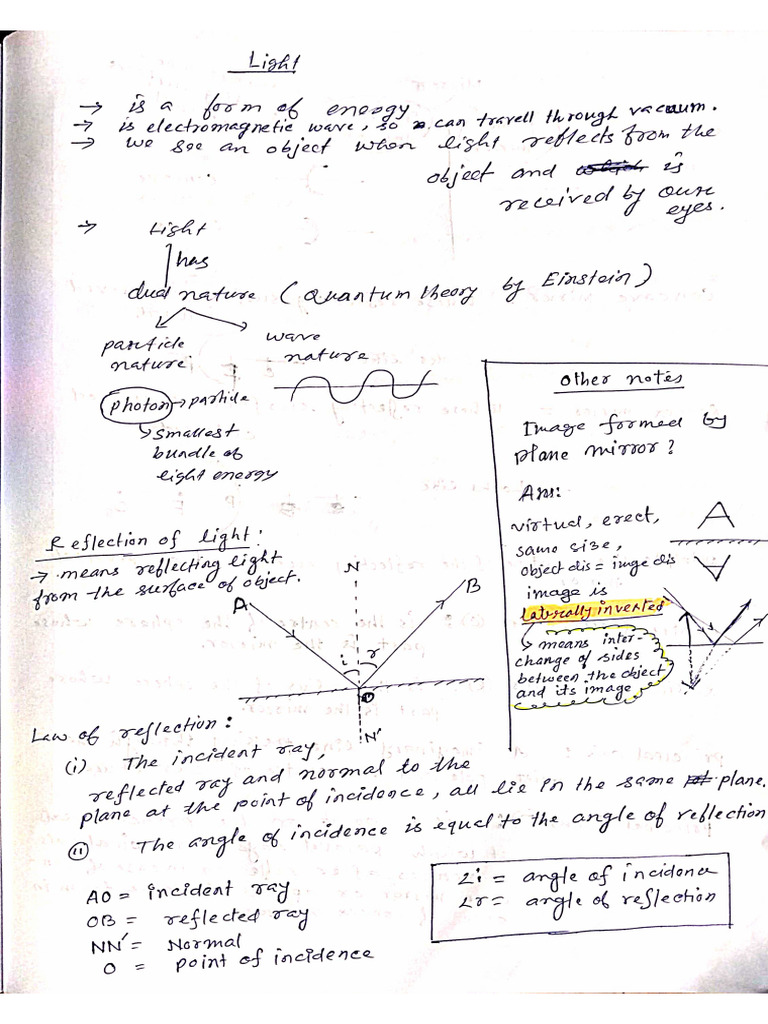 Light
→ is a form of energy
→ is electromagnetic wave, so can travell through vacuum.
→ we see an object when light reflects from the
object and is
received by our
eyes.
→ Light
has
dual nature (Quantum theory by Einstein)
particle
nature
wave
nature
photon → particle
↳ smallest
bundle of
light energy
Other notes
Image formed by
plane mirror?
Ans:
virtual, erect,
same size,
object dis = imge dis
image is
laterally inverted
↳ means inter-
change of sides
between the object
and its image
A
A
Reflection of light:
→ means reflecting light
from the surface of object.
N
A
B
i
r
O
N'
Law of reflection:
(i) The incident ray,
reflected ray and normal to the
plane at the point of incidence, all lie in the same plane.
(ii) The angle of incidence is equal to the angle of reflection
AO = incident ray
OB = reflected ray
NN' = Normal
O = point of incidence
∠i = angle of incidence
∠r = angle of reflection